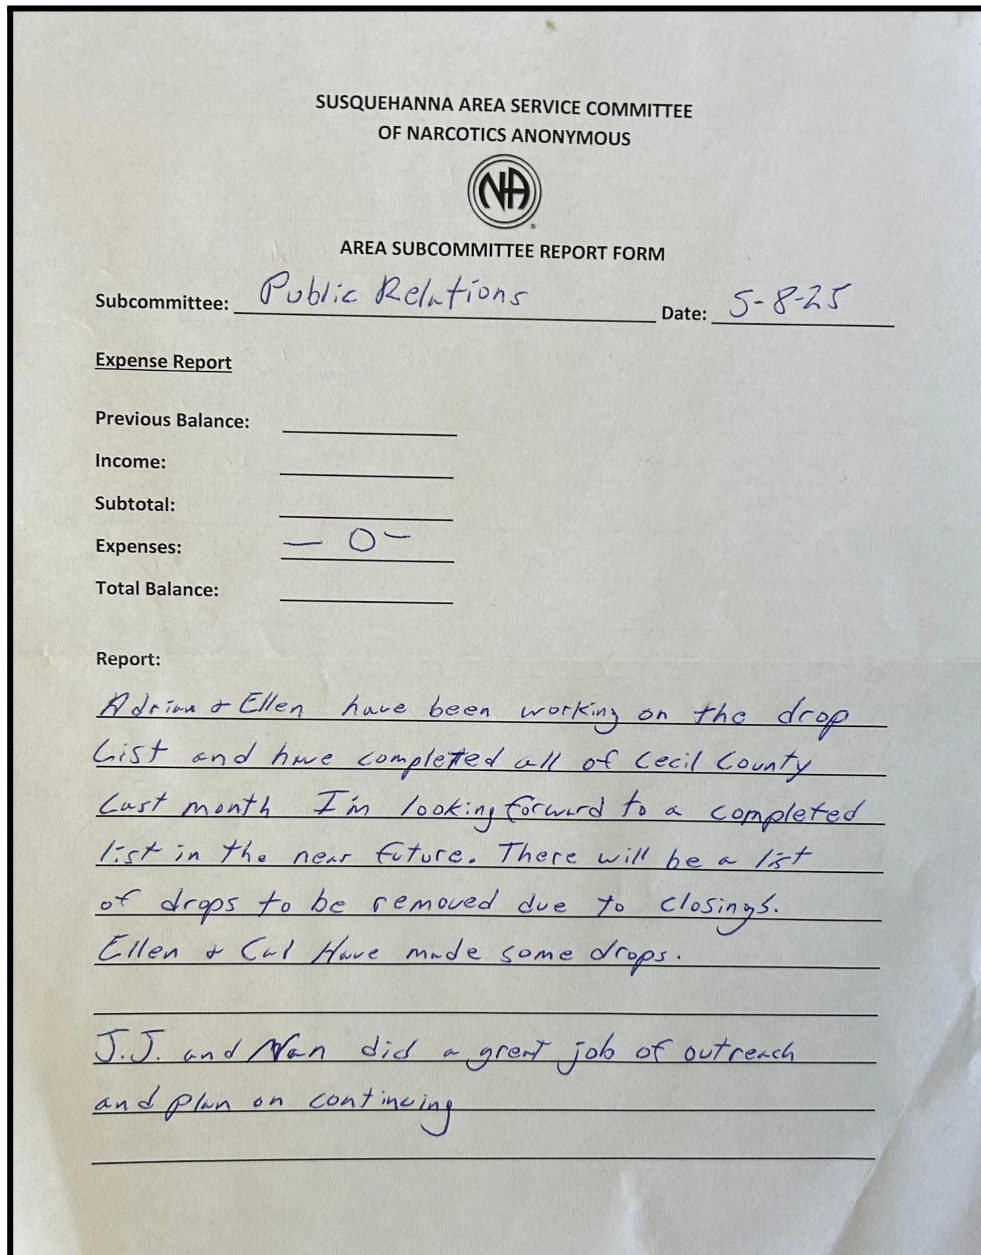 SUSQUEHANNA AREA SERVICE COMMITTEE
OF NARCOTICS ANONYMOUS
NA
AREA SUBCOMMITTEE REPORT FORM
Subcommittee: Public Relations Date: 5-8-25
Expense Report
Previous Balance:
Income:
Subtotal:
Expenses: — 0 —
Total Balance:
Report:
Adrian & Ellen have been working on the drop
List and have completed all of Cecil County
Last month I'm looking forward to a completed
list in the near future. There will be a list
of drops to be removed due to closings.
Ellen & Cal Have made some drops.
J.J. and Nan did a great job of outreach
and plan on continuing